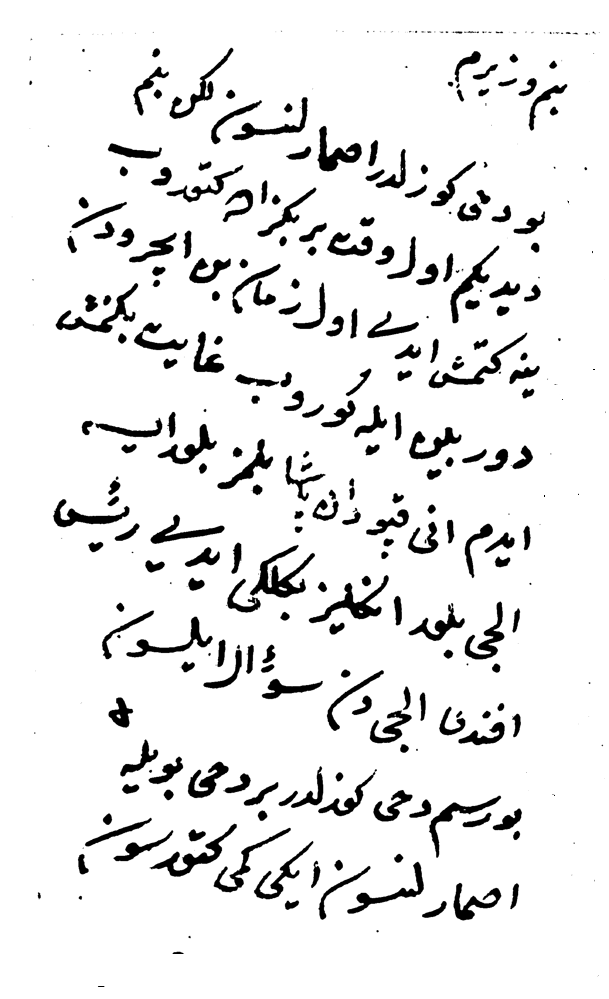 بنم وزیرم
بو دخی کوزلدر اصمارلنسون لکن بنم
دیدیکم اول وقت بر بکزاده کتوروب
ینه کتمش ایدی اول زمان بن ایچرودن
دوربین ایله کوروب غایت بکنمش
ایدم انی قپودان پاشا بلمز بلور ایسه
الجی بلور انکلیز بکلکی ایدی رئیس
افندی الجی دن سؤال ایلسون
بو رسم دخی کوزلدر بر دخی بویله
اصمارلنسون ایکی کمی کتورسون